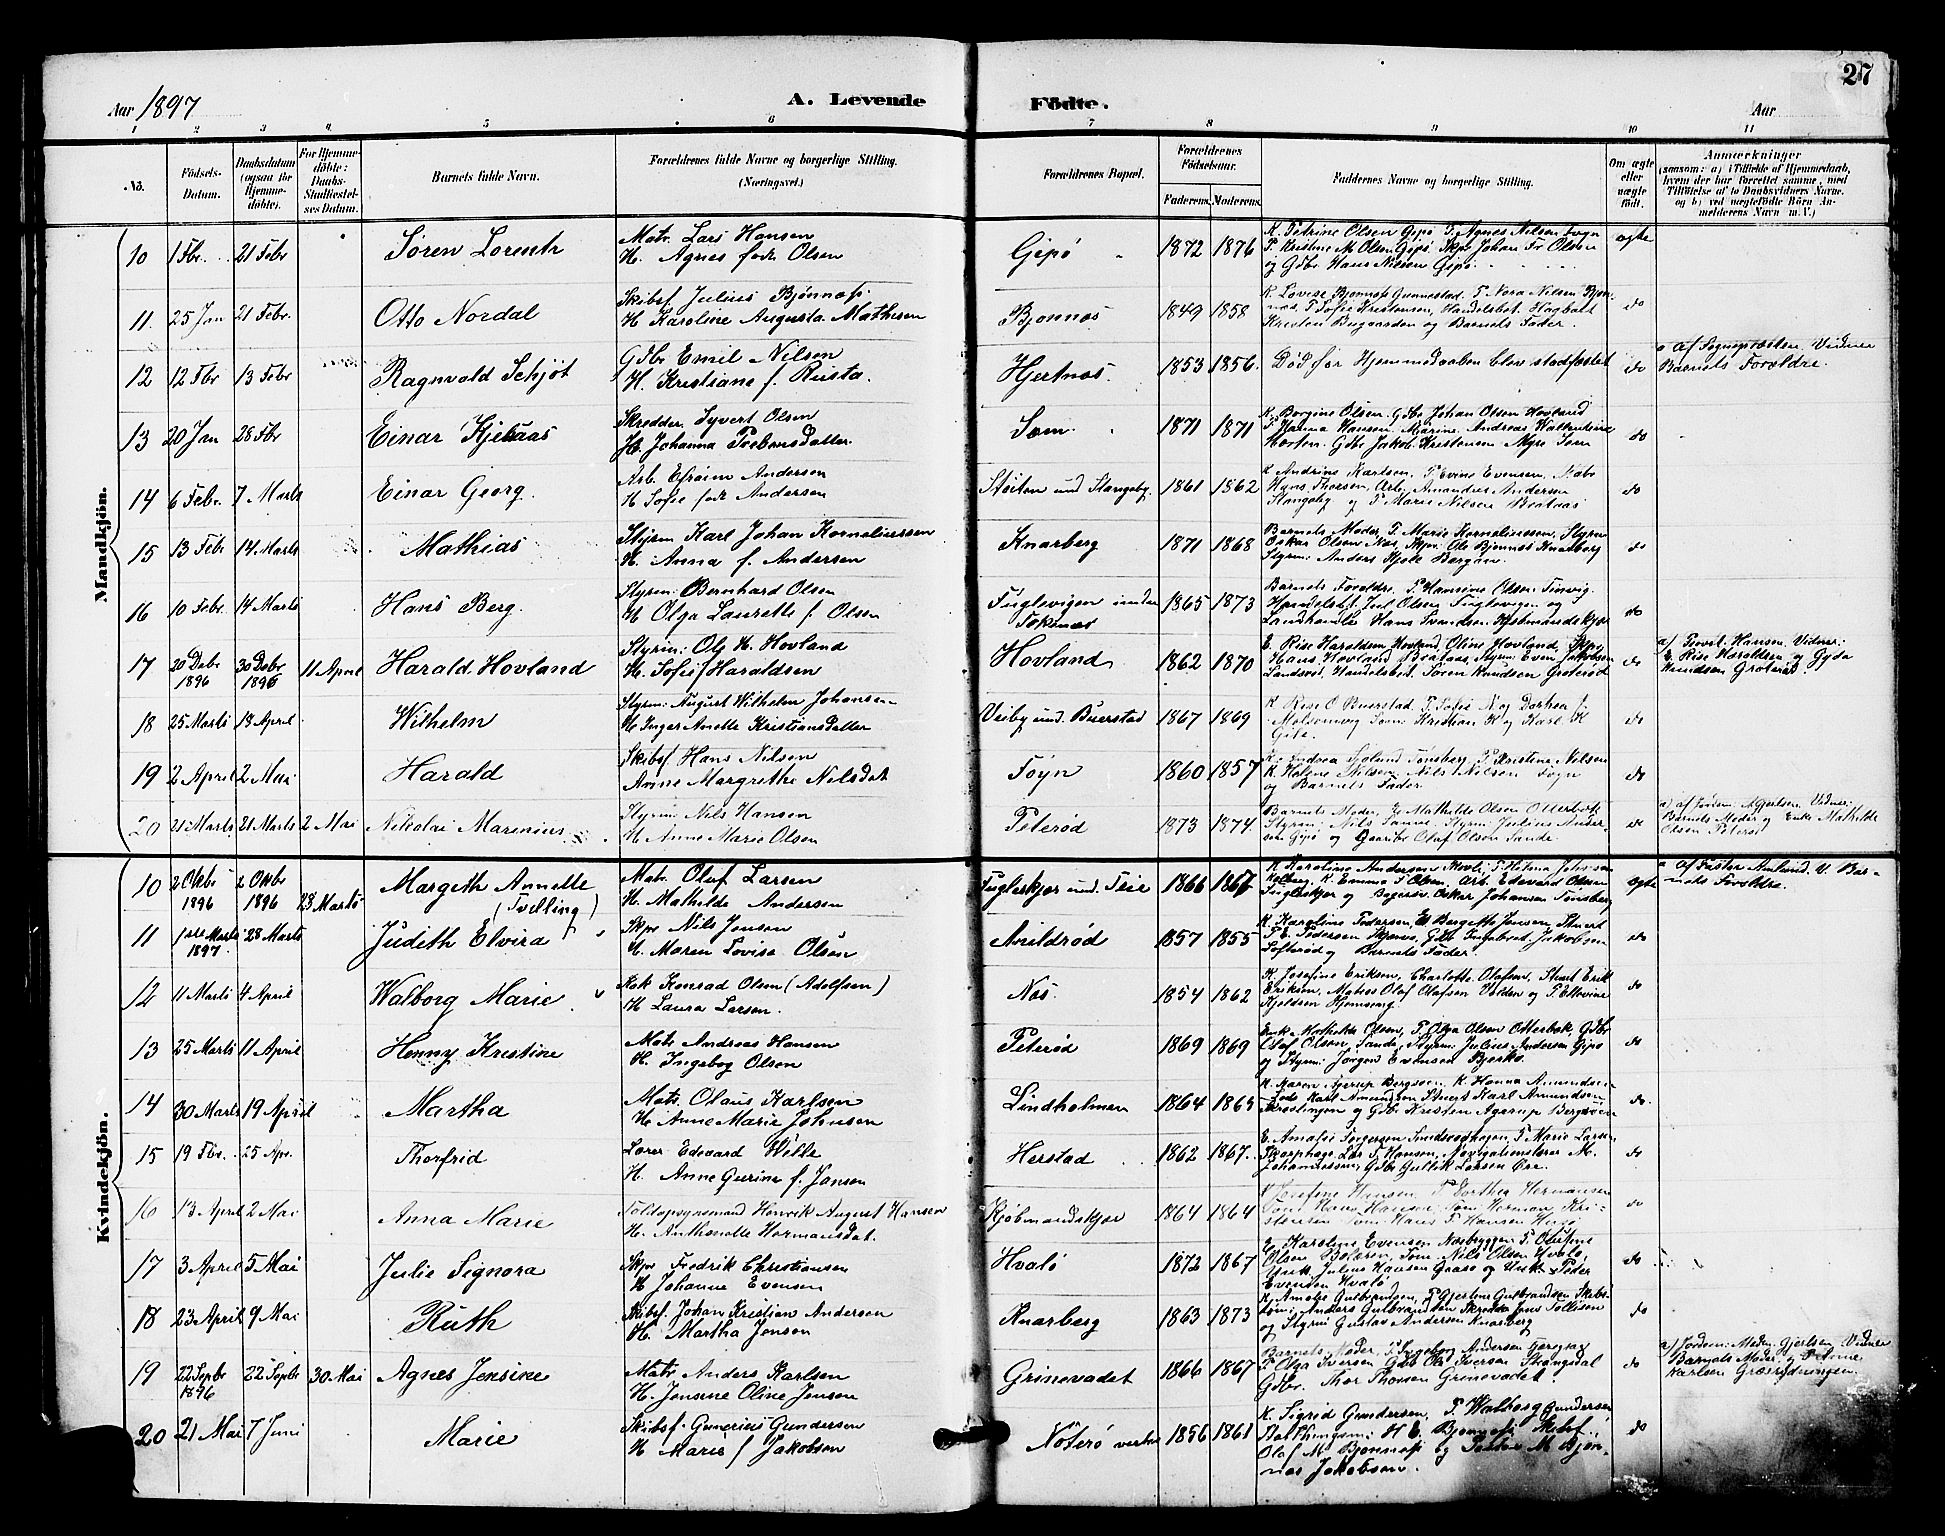 27
Aar 1897
A. Levende Födte.
Aar
1 2 3 4 5 6 7 8 9 10 11
No.
Födsels-Datum.
Daabsdatum (ogsaa for Hjemme-döbte).
For Hjemme-döbte: Daabs-Stadfæstel-ses Datum.
Barnets fulde Navn.
Forældrenes fulde Navne og borgerlige Stilling.
(Næringsvei.)
Forældrenes Bopæl.
Forældrenes Födselsaar.
Faderens. Moderens.
Faddernes Navne og borgerlige Stilling.
Om ægte eller uægte födt.
Anmærkninger
(saasom: a) i Tilfælde af Hjemmedaab, hvem der har forrettet samme, med Tilföielse af to Daabsvidners Navne, og b) ved uægtefödte Börn Anmelderens Navn m. V.)
Mandkjön.
10 1 Fbr. 21 Febr Sören Lorentz Matr. Lars Hansen
H. Agnes fodt Olsen Gipö 1872 1876 K. Petrine Olsen Gipö P. Agnes Nilsen Foyn
P. Kristine M. Olsen Gipö Skpr Johan Fr Olsen
og Gdbr Hans Nilsen Gipö. ægte
11. 25 Jan 21 Febr. Otto Nordal Skibsf. Julius Bjönness
H Karoline Augusta Mathisen Bjonnes 1849 1858 K. Lovise Bjonness Gunnestad. P Nora Nilsen Bjon-
nes. P Sofie Kristensen, Handelsbet. Hagbart
Kristen Bugaarden og Barnets Fader. do
12 12 Fbr 13 Febr Ragnvald Schjöt Gdbr Emil Nilsen
H. Kristiane f. Rusta. Hjertnes. 1853 1856. Död för Hjemmedaaben blev stadfæstet do a af Sognepræsten. Vidner
Barnets Forældre.
13 20 Jan 28 Fbr Einar Kjelaas Skredder Syvert Olsen
H. Johanna Prebensdatter Sem. 1871 1871 K. Borgine Olsen. Gdbr Johan Olsen Hovland
P Hanna Hansen. Marine. Andreas
Horten. Gdbr Jakob Kristensen Myre Sem do
14 6 Febr. 7 Marts Einar Georg. Arb. Efraim Andersen
H Sofie fodt Andersen Stöiten und Stangeby. 1861 1862 K Andrine Karlsen, P Evine Evensen. Nabo
Hans Thorsen, Arb. Amandus Andersen
Stangeby og P Marie Nilsen do
15 13 Febr 14 Marts Mathias Styrm Karl Johan Korneliussen
H. Anna f. Andersen Knarberg 1871 1868 Barnets Moder, P. Marie Korneliussen, Styrm
Oskar Olsen Nes, Skpr. Ole Bjonnes Knarberg
Styrm: Anders Bergan. do
16 10 Febr. 14 Marts Hans Berg. Styrm: Bernhard Olsen
H Olga Laurette f. Olsen Fuglevigen under
Tokenæs 1865 1873 Barnets Forældre. P. Hansine Olsen
Handelsbt. Jul Olsen Fuglevigen og
Landhandler Hans Svendsen Kjöbmandskjær do
17 20 Debr 1896 30 Debr 1896 11 April Harald Hovland Styrm: Ole H. Hovland
H. Sofie f Haraldsen Hovland 1862 1870 E. Rise Haraldsen Hovland, Oline Hovland, Skpr.
Hans Hovland, Styrm Even Jakobsen
Handelsbet. Sören Knudsen Gröteröd do a) Hansen. Vidner:
E Rise Haraldsen og Gyda
Knudsen Gröteröd
18 25 Marts 18 April Wilhelm Styrm: August Wilhelm Johansen
H Inger Anette Kristiansdatter Veiby und. Buerstad 1867 1869 K Rise O Buerstad. P. Sofie N og Dorthea f
Som: Kristian K og Karl K
do
19 2 April 2 Mai Harald Skibsf Hans Nilsen
Anne Margrethe Nilsdat Foyn 1860 1857 Tönsberg. P Kristine Nilsen
K Helene Nilsen, Nils Nilsen Foyn
og Barnets Fader do
20 21 Marts 21 Marts 2 Mai Nikolai Marenius Styrm: Nils Hansen
H Anne Marie Olsen Peteröd 1873 1874. Barnets Moder, Mathilde Olsen Otterbæk
Styrm: Nils Samuel. Styrm Julius Ander-
sen Gipö og Gaardbr Olaf Olsen Sande do a) af Jordm. Gjertsen Vidner:
Barnets Moder og Enke Mathilde
Olsen Peteröd
Kvindekjön.
10 2 Oktbr 1896 2 Oktbr 1896 28 Marts Margeth Annette
(Tvilling) Matr. Olaf Larsen
H. Mathilde Andersen Fugleskjær und. Teie 1866 1867 K Karoline Andersen Skovli, P. Helena Johnsen
K Emma T Olsen Arb. Edevard Olsen
Fugleskjær og Oskar Johansen Tönsberg ægte a af Frk Amlund. V. Bar-
nets Forældre.
11 1ste Marts 1897. 28 Marts Judith Elvira Skpr Nils Jensen
H. Maren Lovise Olsen Arildröd 1857 1855 K. Karoline Pedersen, E Bergette Jensen, Stuert
P. E. Pedersen, Gdbr Ingebret Jakobsen
Lofteröd og Barnets Fader. do
12 11 Marts 4 April Walborg Marie Kok Konrad Olsen (Adolfsen)
H Laura Larsen. Nes. 1854 1862 K. Josefine Eriksen, Charlotte Olafsen, Stuert Erik
Eriksen, Matros Olaf Olafsen Velden og P. Ellevine
Kjeldsen do
13 25 Marts 11 April Henny Kristine Matr Andreas Hansen
H. Ingeborg Olsen Peteröd 1869 1869 Enk. Mathilde Olsen, P. Olga Olsen Otterbæk, Gdbr
Olaf Olsen, Sande, Styrm: Julius Andersen Gipö
og Styrm: Jörgen Evensen Bjerkö. do
14 30 Marts 19 April Martha Matr. Olaus Karlsen
H. Anne Marie Johnsen Lindholmen 1864 1863 K. Maren Agerup Bergsven, K. Hanna Amundsen
Lods Karl Amundsen Stuert Karl Amundsen
og Gdbr Kristen Agerup Bergsven do.
15 19 Fbr. 25 Apr. Thorfrid Lærer Edevard Wille
H. Anne Gurine f. Jensen Herstad 1862 1867. E. Amalie Torgersen, P Marie Larsen
Lars T Hansen, Navigationslærer M.
Johannessen, Gdbr Gullik Larsen Öre. do
16 13 April 2 Mai Anna Marie Toldopsynsmand Henrik August Hansen
H. Anthonette Hermansdat. Kjöbmandskjær 1864 1864 Josefine Hansen, P Dorthea Hermansen
Som: Hans Hansen, Som Herman Kri-
stensen Som. Hans T Hansen do
17 3 April 5 Mai Julie Signora Skpr Fredrik Christiansen
H Johanne Evensen Hvalö 1872 1867 E. Karoline Evensen Næsbryggen P Oline
Olsen Bolæren, Som. Nils Olsen Hvalö,
Unk. Julius Hansen og Unk Peder
Evensen Hvalö do
18 23 April 9 Mai Ruth Skibsf. Johan Kristian Andersen
H. Martha Jensen Knarberg 1863 1873 K. Amalie Gulbrandsen, P Gjestine Gulbrandsen Skibs-
töm: Anders Gulbrandsen Skredder Jens Tollisen
og Styrm Gustav Andersen Knarberg do
19 22 Septbr 1896 22 Septbr 30 Mai Agnes Jensine Matr Anders Karlsen
H. Jensine Oline Jensen Grinevadet 1866 1867 Barnets Moder, P Ingeborg Andersen
P. Olga Iversen Gdbr Ole Iversen Skongsdal
Gdbr. Thor Thorsen Grinevadet. do a) Jordem: Gjertsen Vidner
Barnets Moder og
Karlsen Græsrydningen.
20 21 Mai 7 Juni Marie Skibsf: Gunerius Gundersen
H Marie f Jakobsen Nöterö vestre 1856 1861 K. Sigrid Gundersen, P. Walborg Gundersen
H E Bjönness Skibsf.
Olaf M Bjonness og M Bjön-
nes Jakobsen. do